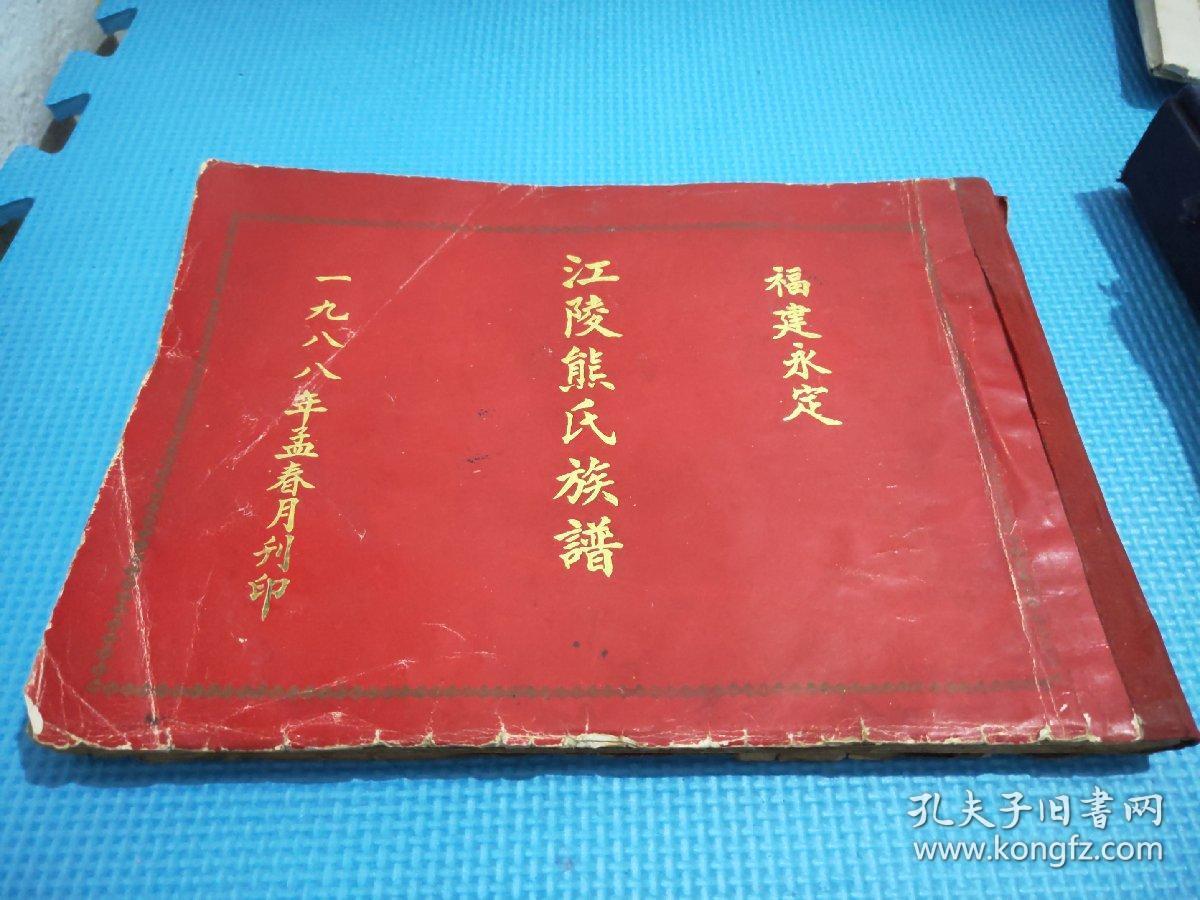 福建永定
江陵熊氏族譜
一九八八年孟春月刊印
孔夫子旧書网
www.kongfz.com